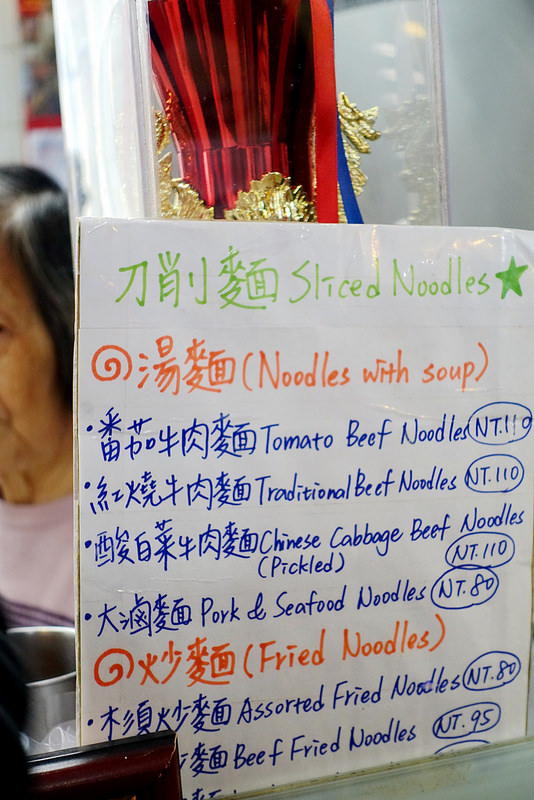 刀削麵 Sliced Noodles
湯麵 (Noodles with soup)
·番茄牛肉麵 Tomato Beef Noodles NT.110
·紅燒牛肉麵 Traditional Beef Noodles NT.110
·酸白菜牛肉麵 Chinese Cabbage Beef Noodles
(Pickled) NT.110
·大滷麵 Pork & Seafood Noodles NT.80
炒麵 (Fried Noodles)
·木須炒麵 Assorted Fried Noodles NT.80
麵 Beef Fried Noodles NT.95